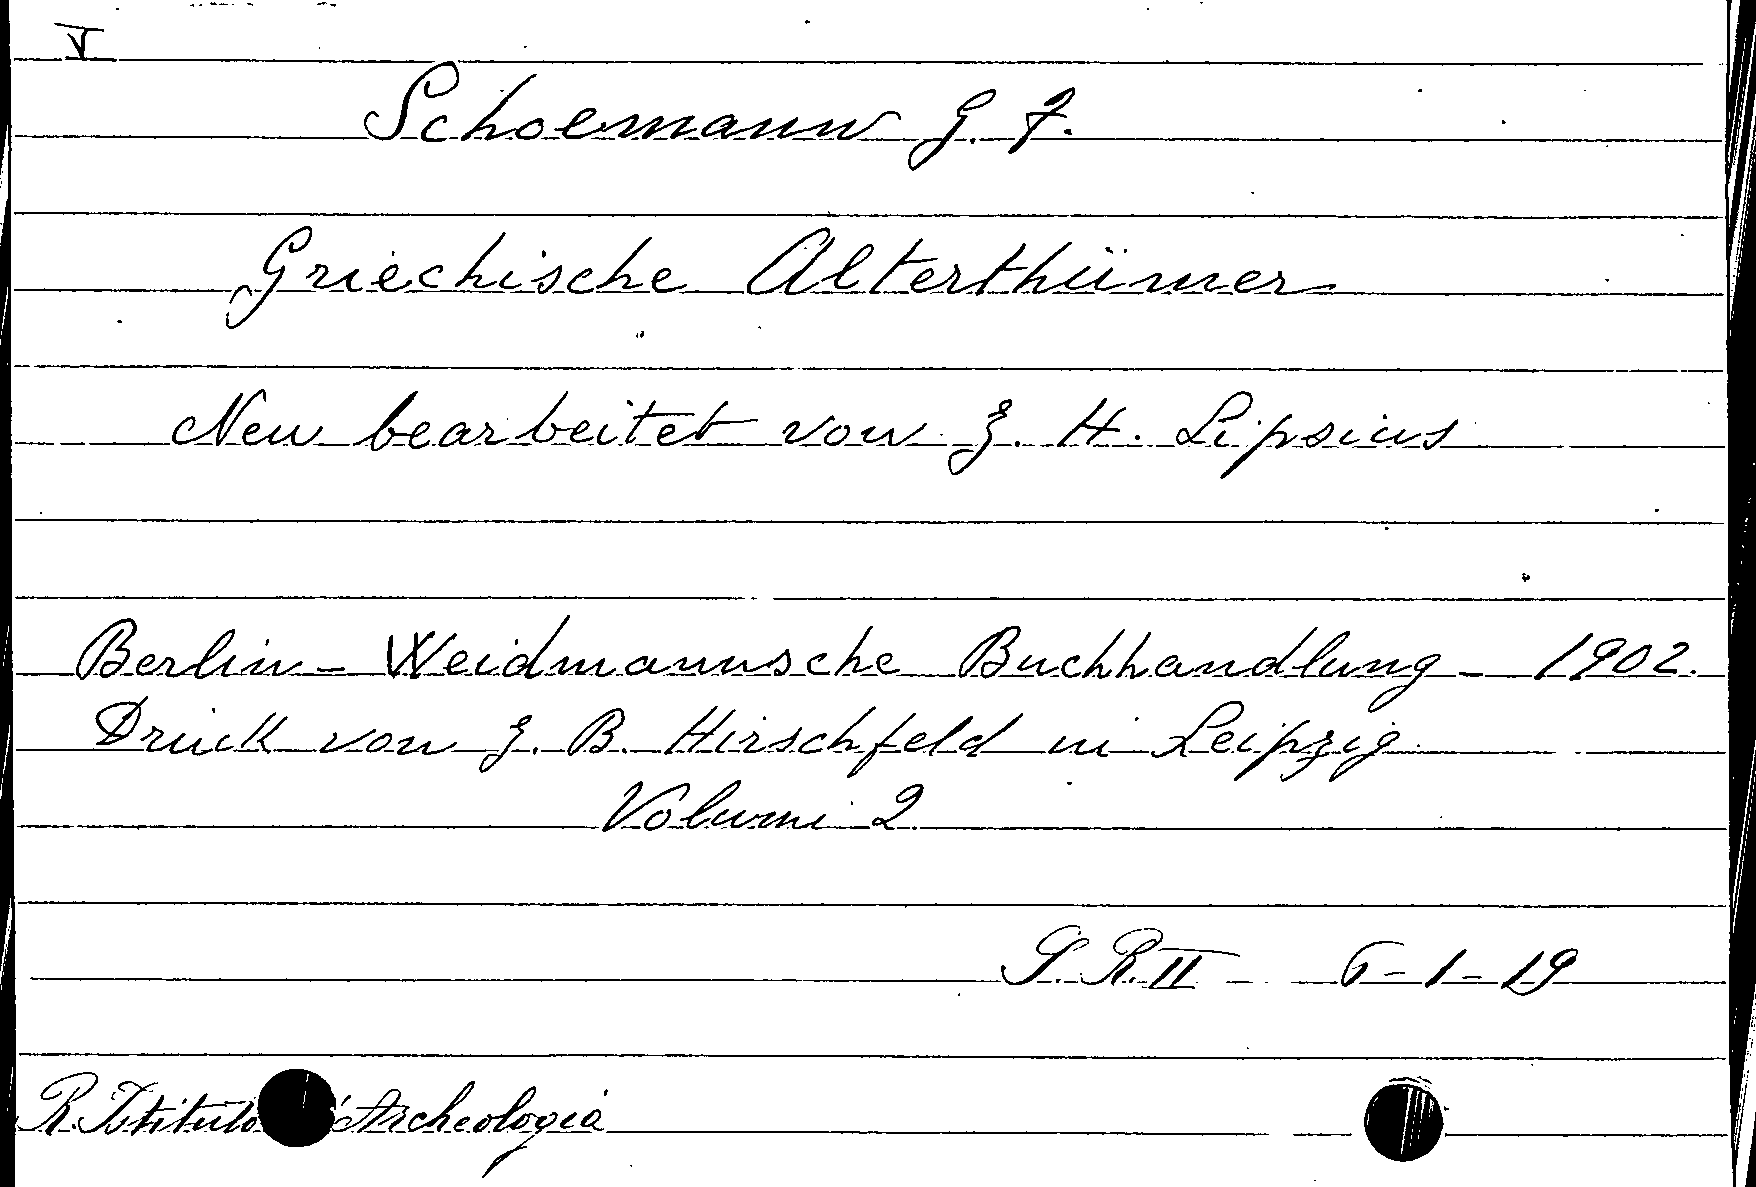 V
Schoemann G. F.
Griechische Alterthümer
Neu bearbeitet von J. H. Lipsius
Berlin - Weidmannsche Buchhandlung - 1902.
Druck von J. B. Hirschfeld in Leipzig
Volumi 2
S. R. II - 6-1-19
R. Istituto Archeologia